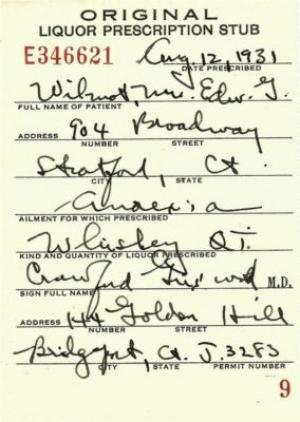 ORIGINAL
LIQUOR PRESCRIPTION STUB
E346621 Aug. 12, 1931
DATE PRESCRIBED
Wilmot, Mr. Edw. G.
FULL NAME OF PATIENT
904 Broadway
ADDRESS NUMBER STREET
Stratford, Ct.
CITY STATE
Anorexia
AILMENT FOR WHICH PRESCRIBED
Whiskey QT.
KIND AND QUANTITY OF LIQUOR PRESCRIBED
Crawford M.D.
SIGN FULL NAME
144 Golden Hill
ADDRESS NUMBER STREET
Bridgeport, Ct. J. 3283
CITY STATE PERMIT NUMBER
9